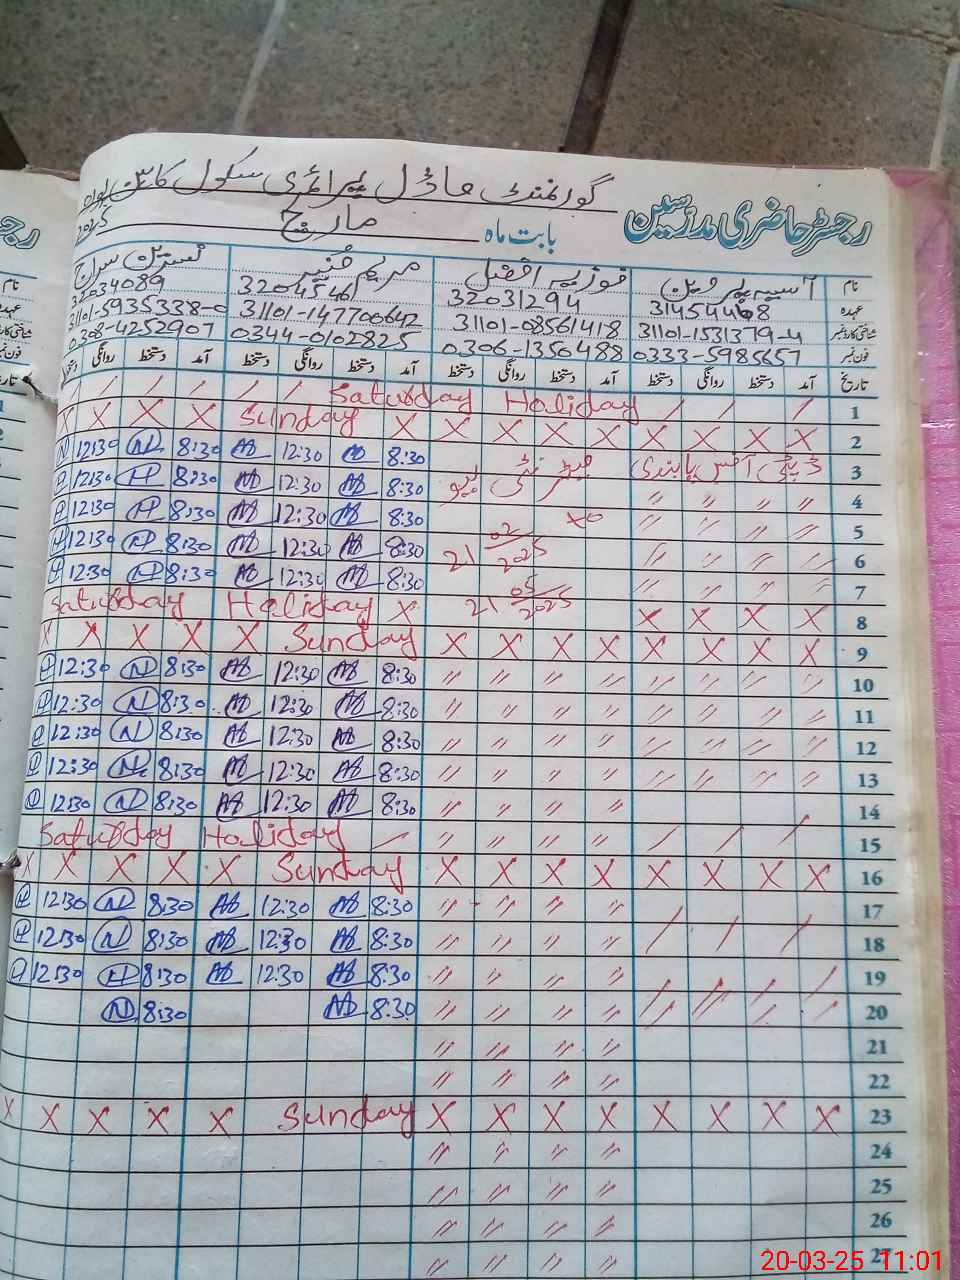 گورنمنٹ ماڈل پرائمری سکول
رجسٹر حاضری مدرسین
بابت ماہ مارچ 2025
نام آسیہ پروین فوزیہ افضل مریم منیر نسرین سراج
عہدہ 31454468 32031294 32034089
شناختی کارڈ نمبر 31101-1531379-4 31101-08561418 31101-147700642 31101-5935338-0
فون نمبر 0333-5985657 0306-1350488 0344-0102825 0308-4252907
تاریخ آمد دستخط روانگی دستخط آمد دستخط روانگی دستخط آمد دستخط روانگی دستخط آمد دستخط روانگی دستخط
1 Saturday Holiday
2 X X X X X X X X X Sunday X X X X
3 8:30 12:30 8:30 12:30
4 8:30 12:30 8:30 12:30
5 8:30 12:30 8:30 12:30
6 21 02/2025 8:30 12:30 8:30 12:30
7 8:30 12:30 8:30 12:30
8 X X X X 21 05/2025 X Saturday Holiday
9 X X X X X X X X Sunday X X X X X
10 8:30 12:30 8:30 12:30
11 8:30 12:30 8:30 12:30
12 8:30 12:30 8:30 12:30
13 8:30 12:30 8:30 12:30
14 8:30 12:30 8:30 12:30
15 Saturday Holiday
16 X X X X X X X X Sunday X X X X X
17 8:30 12:30 8:30 12:30
18 8:30 12:30 8:30 12:30
19 8:30 12:30 8:30 12:30
20 8:30 8:30
21
22
23 X X X X X X X X Sunday X X X X X
24
25
26
27
20-03-25 11:01